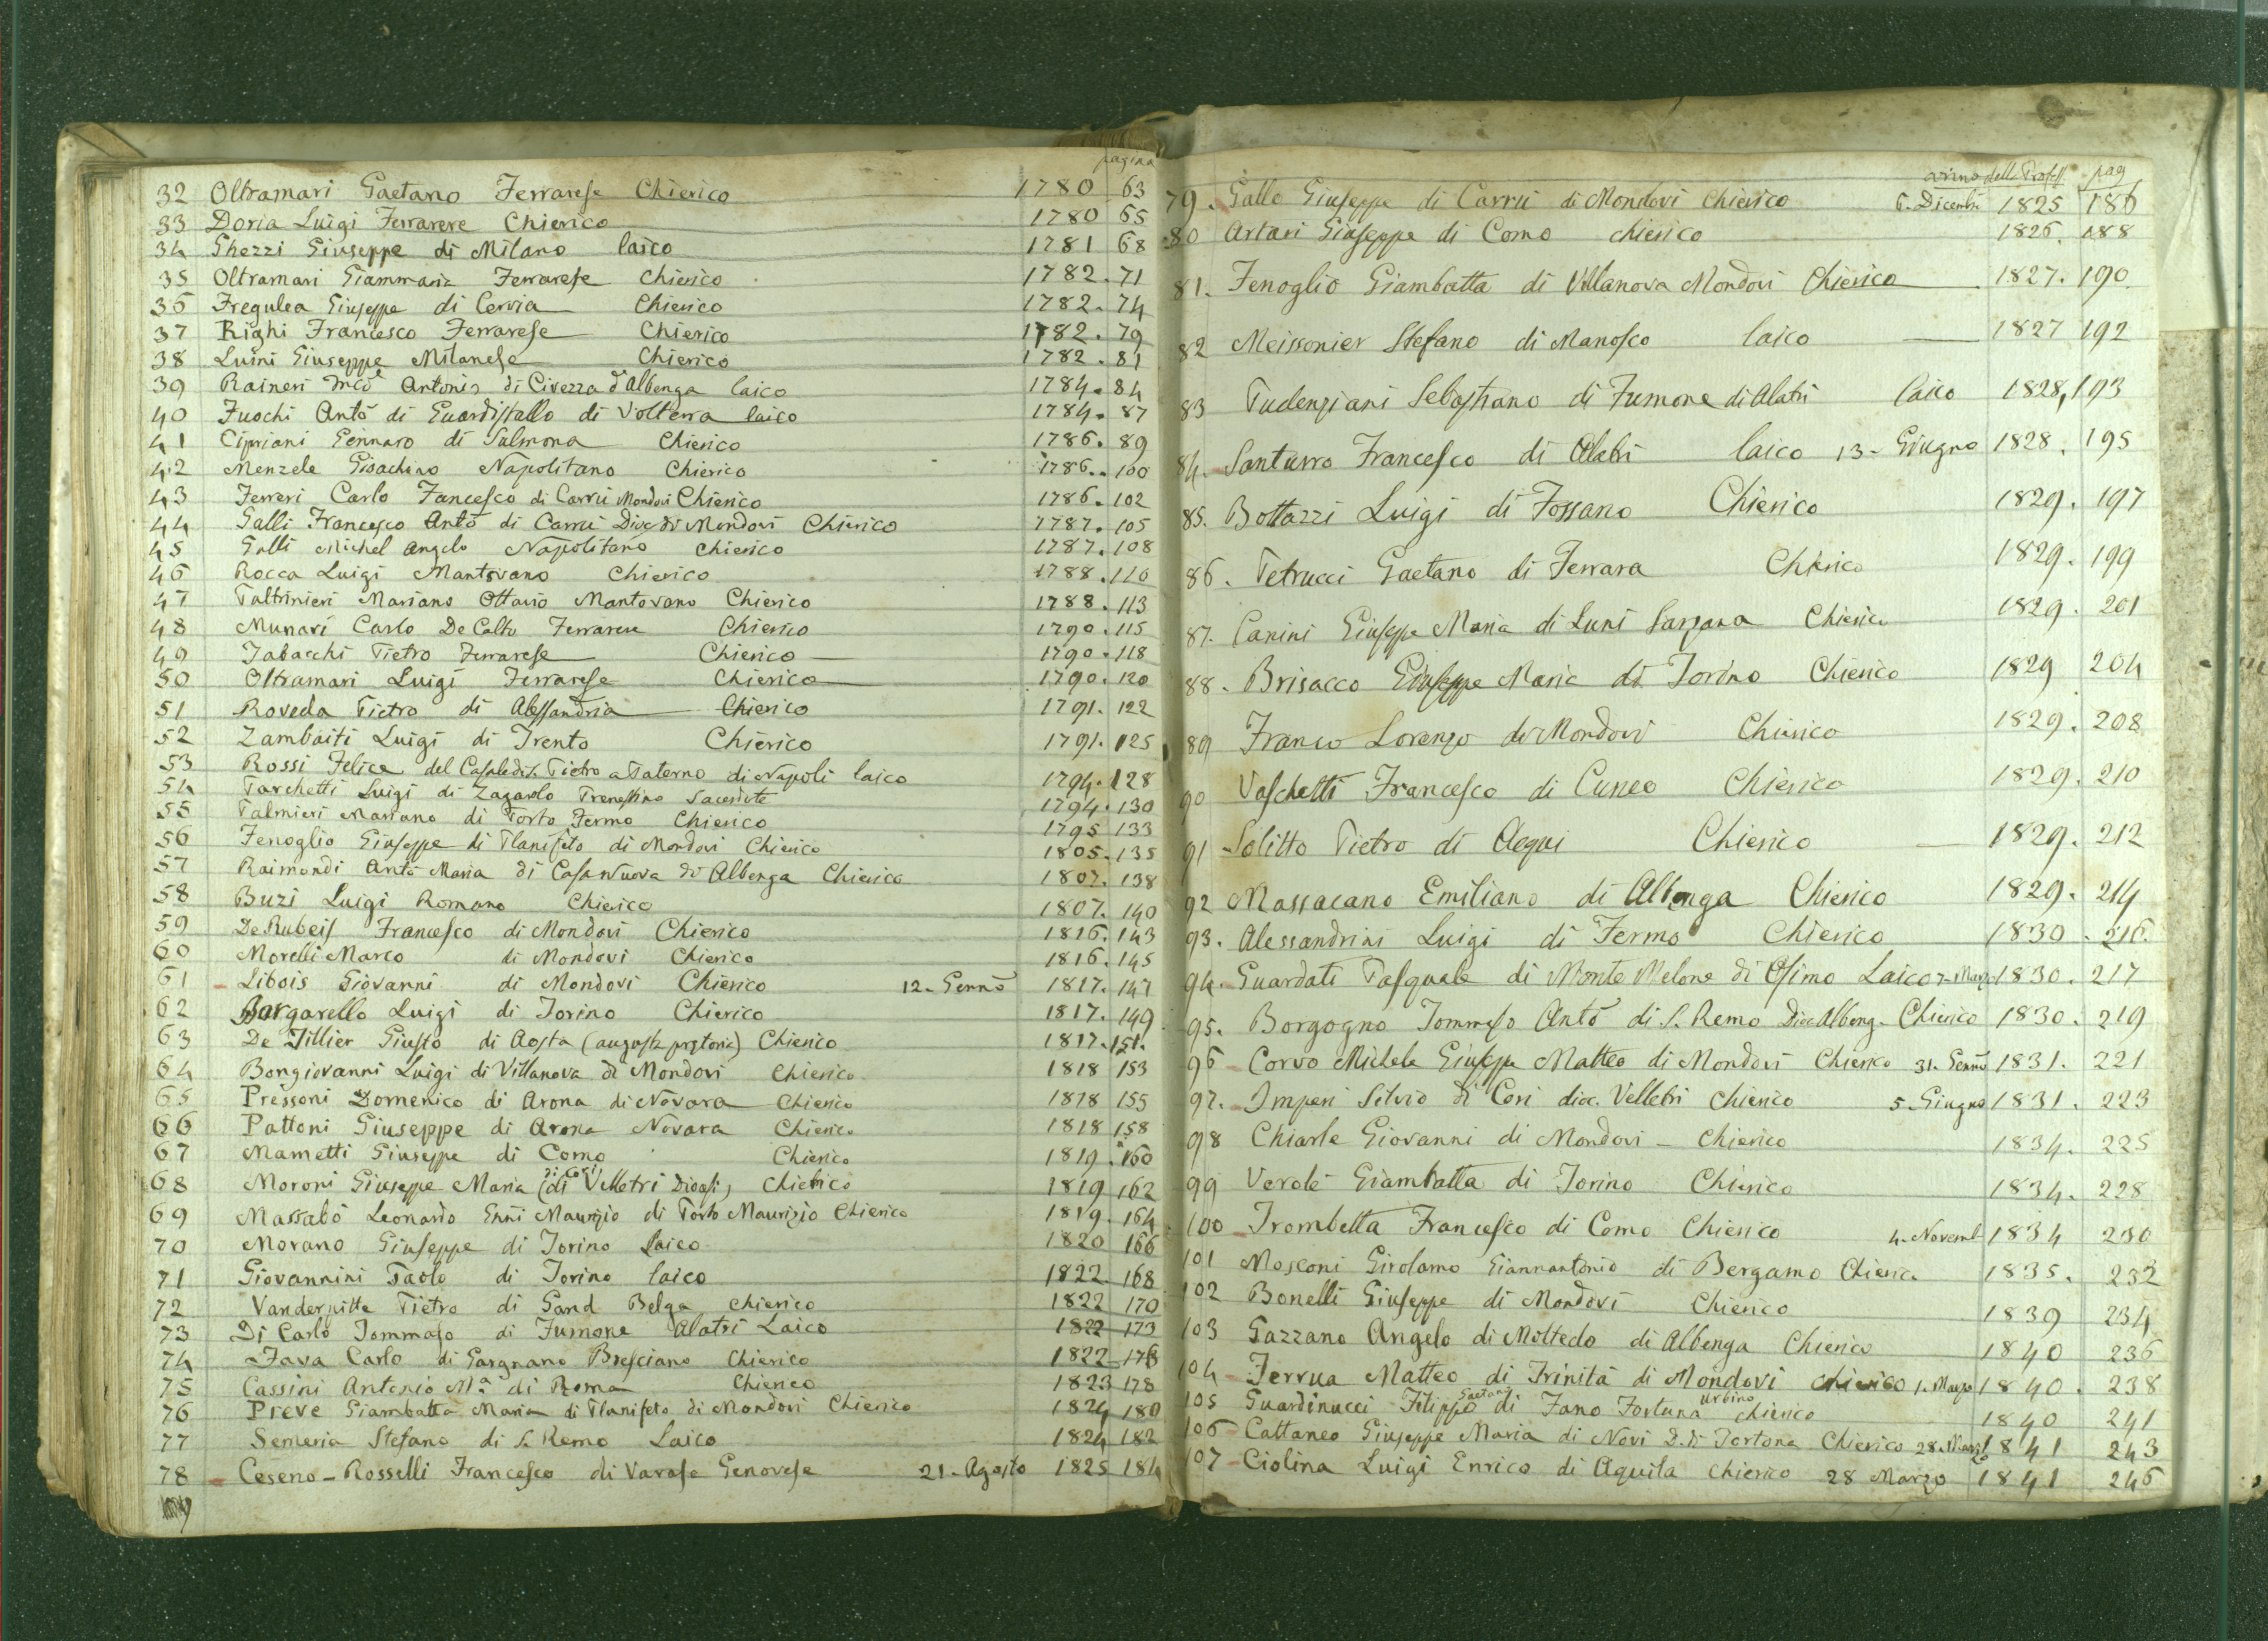 pagina
32 Oltramari Gaetano Ferrarese Chierico 1780 63
33 Doria Luigi Ferrarere Chierico 1780 65
34 Ghezzi Giuseppe di Milano laico 1781 68
35 Oltramari Giammaria Ferrarese Chierico 1782. 71
36 Fregulea Giuseppe di Cervia Chierico 1782. 74
37 Righi Francesco Ferrarese Chierico 1782. 79
38 Luini Giuseppe Milanese Chierico 1782. 81
39 Raineri Antonio di Civezza d'Albenga laico 1784. 84
40 Fuochi Antò di Guardistallo di Volterra laico 1784. 87
41 Cipriani Gennaro di Sulmona Chierico 1786. 89
42 Menzele Gioachino Napolitano Chierico 1786. 100
43 Ferreri Carlo Fancesco di Carrù Mondovi Chierico 1786. 102
44 Galli Francesco Antò di Carrù Dioc di Mondovi Chierico 1787. 105
45 Galli Michel Angelo Napolitano Chierico 1787. 108
46 Rocca Luigi Mantovano Chierico 1788. 110
47 Paltrinieri Mariano Ottavio Mantovano Chierico 1788. 113
48 Munari Carlo De Calto Ferrarere Chierico 1790. 115
49 Tabacchi Pietro Ferrarese Chierico 1790. 118
50 Oltramari Luigi Ferrarese Chierico 1790. 120
51 Roveda Pietro di Alessandria Chierico 1791. 122
52 Zambaiti Luigi di Trento Chierico 1791. 125
53 Rossi Felice del Casale di S. Pietro a Paterno di Napoli laico 1794. 128
54 Parchetti Luigi di Zagarolo Prenestino Sacerdote 1794. 130
55 Palmieri Mariano di Porto Fermo Chierico 1795 133
56 Fenoglio Giuseppe di Planfeto di Mondovi Chierico 1805. 135
57 Raimondi Antò Maria di Casanuova di Albenga Chierico 1807. 138
58 Buzi Luigi Romano Chierico 1807. 140
59 De Rubeis Francesco di Mondovi Chierico 1816. 143
60 Morelli Marco di Mondovi Chierico 1816. 145
61 Libois Giovanni di Mondovi Chierico 12. Gennò 1817. 147
62 Bargarello Luigi di Torino Chierico 1817. 149
63 De Tillier Giusto di Aosta (augusta pretoria) Chierico 1817. 151.
64 Bongiovanni Luigi di Villanova di Mondovi Chierico 1818 153
65 Pressoni Domenico di Arona di Novara Chierico 1818 155
66 Pattoni Giuseppe di Arona Novara Chierico 1818 158
67 Mametti Giuseppe di Como Chierico 1819. 160
68 Moroni Giuseppe Maria (di Cori di Velletri Diocesi) Chierico 1819 162
69 Massabò Leonardo Maurizio di Porto Maurizio Chierico 1819. 164
70 Morano Giuseppe di Torino Laico 1820 166
71 Giovannini Paolo di Torino laico 1822 168
72 Vanderpitte Pietro di Gand Belga chierico 1822 170
73 Di Carlo Tommaso di Fumone Alatri Laico 1822 173
74 Fava Carlo di Gargnano Bresciano Chierico 1822 176
75 Cassini Antonio Mª. di Roma Chierico 1823 178
76 Preve Giambatta Maria di Planifeto di Mondovi Chierico 1824 180
77 Semeria Stefano di S. Remo Laico 1824 182
78 Ceseno-Rosselli Francesco di Varase Genovese 21. Agosto 1825 184
anno della Profess pag
79. Gallo Giuseppe di Carrù di Mondovi Chierico 6. Dicemb. 1825 186
80 Artari Giuseppe di Como chierico 1826. 188
81. Fenoglio Giambatta di Villanova Mondovi Chierico 1827. 190.
82 Meissonier Stefano di Manosco laico 1827 192
83 Pudenziani Sebastiano di Fumone di Alatri laico 1828, 193
84. Santurro Francesco di Alatri laico 13. Giugno 1828. 195
85. Bottazzi Luigi di Fossano Chierico 1829. 197
86. Petrucci Gaetano di Ferrara Chierico 1829. 199
87. Canini Giuseppe Maria di Luni Sarzana Chierico 1829. 201
88. Brisacco Giuseppe Maria di Torino Chierico 1829 204
89 Franco Lorenzo di Mondovi Chierico 1829. 208
90 Vaschetti Francesco di Cuneo Chierico 1829. 210
91 Solitto Pietro di Acqui Chierico 1829. 212
92 Massacano Emiliano di Albenga Chierico 1829. 214
93. Alessandrini Luigi di Fermo Chierico 1830. 216.
94. Guardati Pasquale di Monte Melone di Osimo Laico 7. Marzo 1830. 217
95. Borgogno Tommaso Antò di S. Remo Dioc Albeng. Chierico 1830. 219
96 Corvo Michele Giuseppe Matteo di Mondovi Chierico 31. Gennò 1831. 221
97. Imperi Silvio di Cori dioc. Velletri Chierico 5. Giugno 1831. 223
98 Chiarle Giovanni di Mondovi - Chierico 1834. 225
99 Verolè Giambatta di Torino Chierico 1834. 228
100 Trombetta Francesco di Como Chierico 4. Novemb 1834 230
101 Mosconi Girolamo Giannantonio di Bergamo Chierico 1835. 232
102 Bonelli Giuseppe di Mondovi Chierico 1839 234
103 Gazzano Angelo di Moltedo di Albenga Chierico 1840 236
104 Ferrua Matteo di Trinità di Mondovi Chierico 1. Marzo 1840. 238
105 Guardinucci Filippo Gaetano di Fano Fortuna Urbino chierico 1840 241
106 Cattaneo Giuseppe Maria di Novi D. di Tortona Chierico 28. Marzo 1841 243
107 Ciolina Luigi Enrico di Aquila Chierico 28 Marzo 1841 246